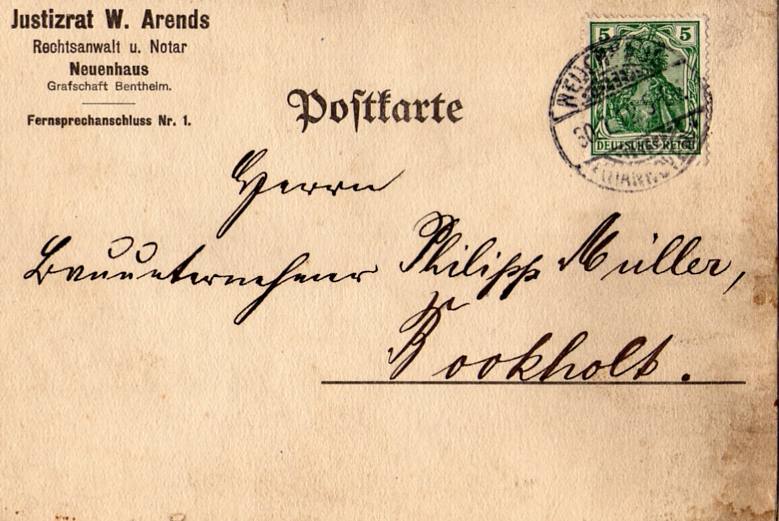 Justizrat W. Arends
Rechtsanwalt u. Notar
Neuenhaus
Grafschaft Bentheim.
Fernsprechanschluss Nr. 1.
Postkarte
5 5
DEUTSCHES REICH
Herrn
Bauunternehmer Philipp Müller,
Bookholt.